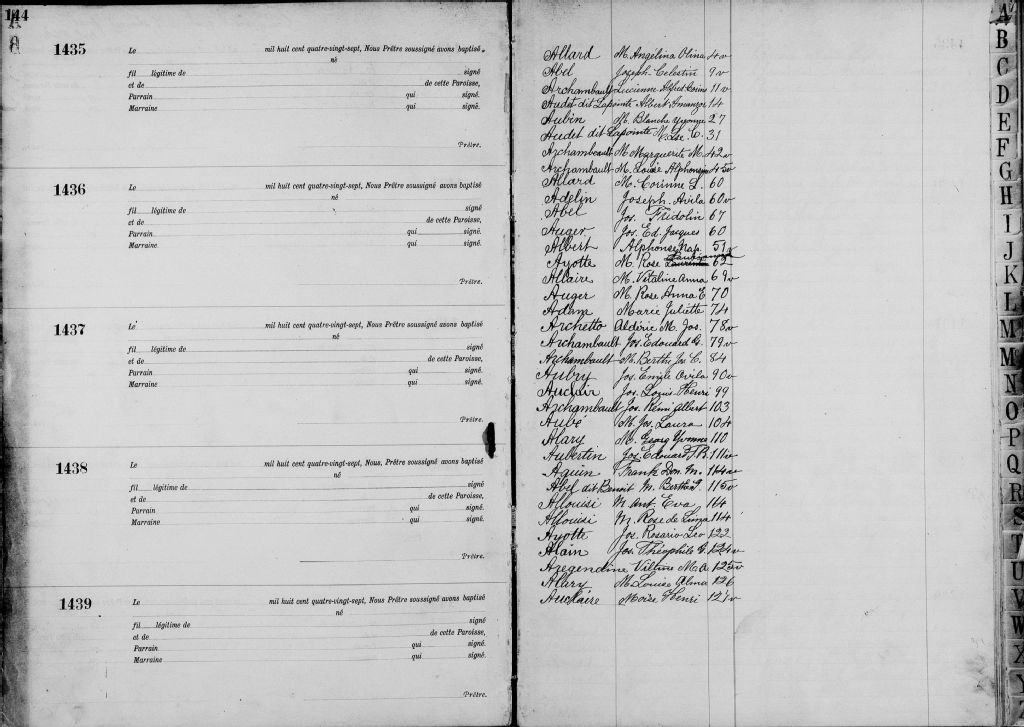 144
A
1435 Le mil huit cent quatre-vingt-sept, Nous Prêtre soussigné avons baptisé
né
fil légitime de signé
et de de cette Paroisse,
Parrain qui signé.
Marraine qui signé.
Prêtre.
1436 Le mil huit cent quatre-vingt-sept, Nous Prêtre soussigné avons baptisé
né
fil légitime de signé
et de de cette Paroisse,
Parrain qui signé.
Marraine qui signé.
Prêtre.
1437 Le mil huit cent quatre-vingt-sept, Nous Prêtre soussigné avons baptisé
né
fil légitime de signé
et de de cette Paroisse,
Parrain qui signé.
Marraine qui signé.
Prêtre.
1438 Le mil huit cent quatre-vingt-sept, Nous, Prêtre soussigné avons baptisé
né
fil légitime de signé
et de de cette Paroisse,
Parrain qui signé.
Marraine qui signé.
Prêtre.
1439 Le mil huit cent quatre-vingt-sept, Nous Prêtre soussigné avons baptisé
né
fil légitime de signé
et de de cette Paroisse,
Parrain qui signé.
Marraine qui signé.
Prêtre.
Allard M. Angélina Olina 4v
Abel Joseph Celestin 9v
Archambault Lucienne Alfred 11v
Audet dit Lapointe Albert 14
Aubin M. Blanche Yvonne 27
Audet dit Lapointe M. C. 31
Archambault M Marguerite M. 42v
Archambault M. Louise 45v
Allard M. Corinne L. 60
Adelin Joseph Avila 60v
Abel Jos. Fridolin 67
Auger Jos. Ed. Jacques 60
Albert Alphonse Nap. 51v
Ayotte M. Rose 68
Allaire M. Vitaline Anna 69v
Auger M. Rose Anna E 70
Adam Marie Juliette 74
Archetto Aldéric M. Jos. 78v
Archambault Jos. Edouard G. 79v
Archambault M. Berthe Jos. C. 84
Aubry Jos. Emile Ovila 90v
Auclair Jos. Louis Henri 99
Archambault Jos. Rémi Albert 103
Aubé M. Jos. Laura 104
Alary M. Georg Yvonne 110
Aubertin Jos. Edouard T.B. 111v
Aquin Frank Don. M. 114v
Abel dit Benoit M. Bertha 115v
Allouisi M Ant. Eva 114
Allouisi M. Rose de Lima 114
Ayotte Jos. Rosario Leo 122
Alain Jos. Théophile G. 124v
M. A 125v
Alary M. Louise Alma 126
Auclaire Moïse Henri 127v
A
B
C
D
E
F
G
H
I
J
K
L
M
M
N
O
P
Q
R
S
T
U
V
W
X
Y
Z